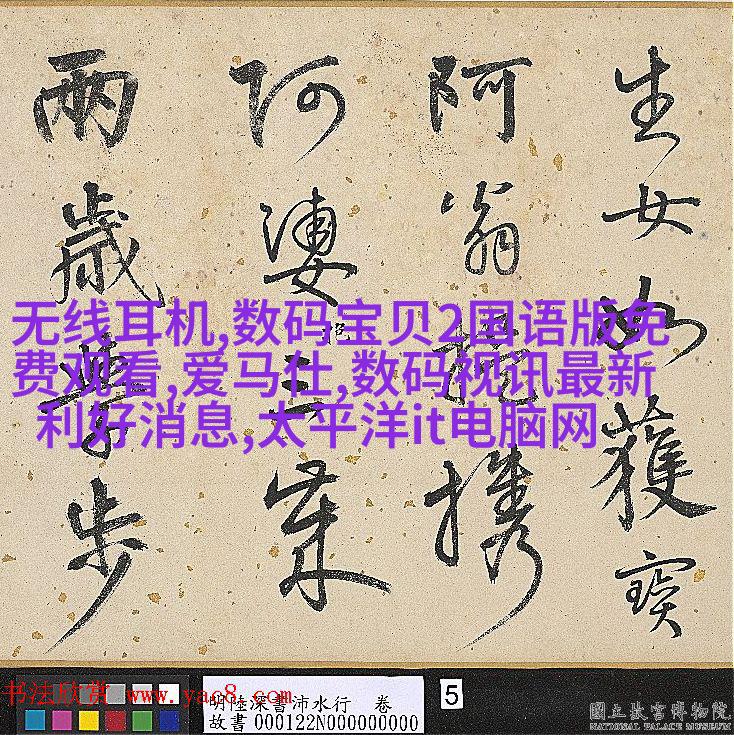 生女如獲寶
阿翁提携
阿婆抱三
兩歲學步
无线耳机,数码宝贝2国语版免
费观看,爱马仕,数码视讯最新
利好消息,太平洋it电脑网
书法欣赏 www.yac8.com
明陸深書沛水行 卷
故書000122N000000000
5
國立故宮博物院
NATIONAL PALACE MUSEUM